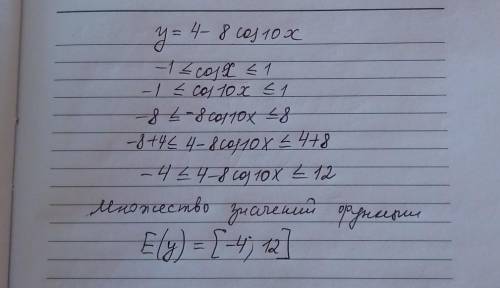 y = 4 - 8 cos 10x
-1 ≤ cos x ≤ 1
-1 ≤ cos 10x ≤ 1
-8 ≤ -8 cos 10x ≤ 8
-8+4 ≤ 4-8 cos 10x ≤ 4+8
-4 ≤ 4-8 cos 10x ≤ 12
Множество значений функции
E(y) = [-4; 12]